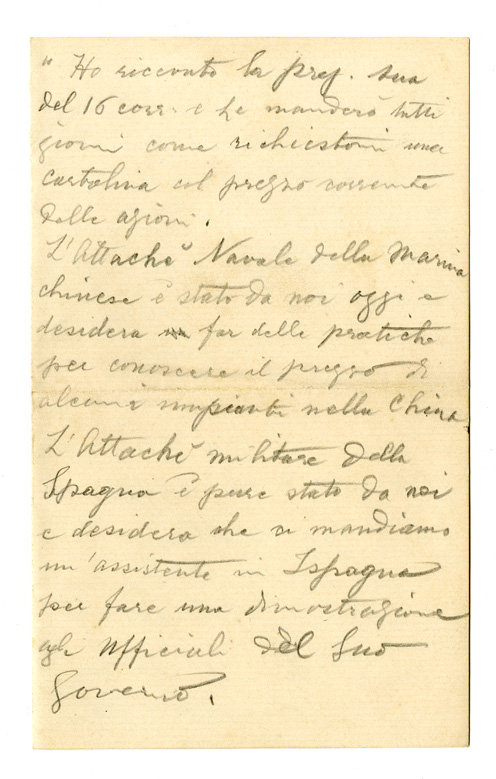 " Ho ricevuto la preg. sua
del 16 corr. e Le manderò tutti
giorni come richiestomi una
cartolina col prezzo corrente
delle azioni.
L'Attachè Navale della Marina
chinese è stato da noi oggi e
desidera far delle pratiche
per conoscere il prezzo di
alcuni impianti nella China.
L'Attachè militare della
Spagna è pure stato da noi
e desidera che si mandiamo
un'assistente in Ispagna
per fare una dimostrazione
agli Ufficiali del Suo
Governo.